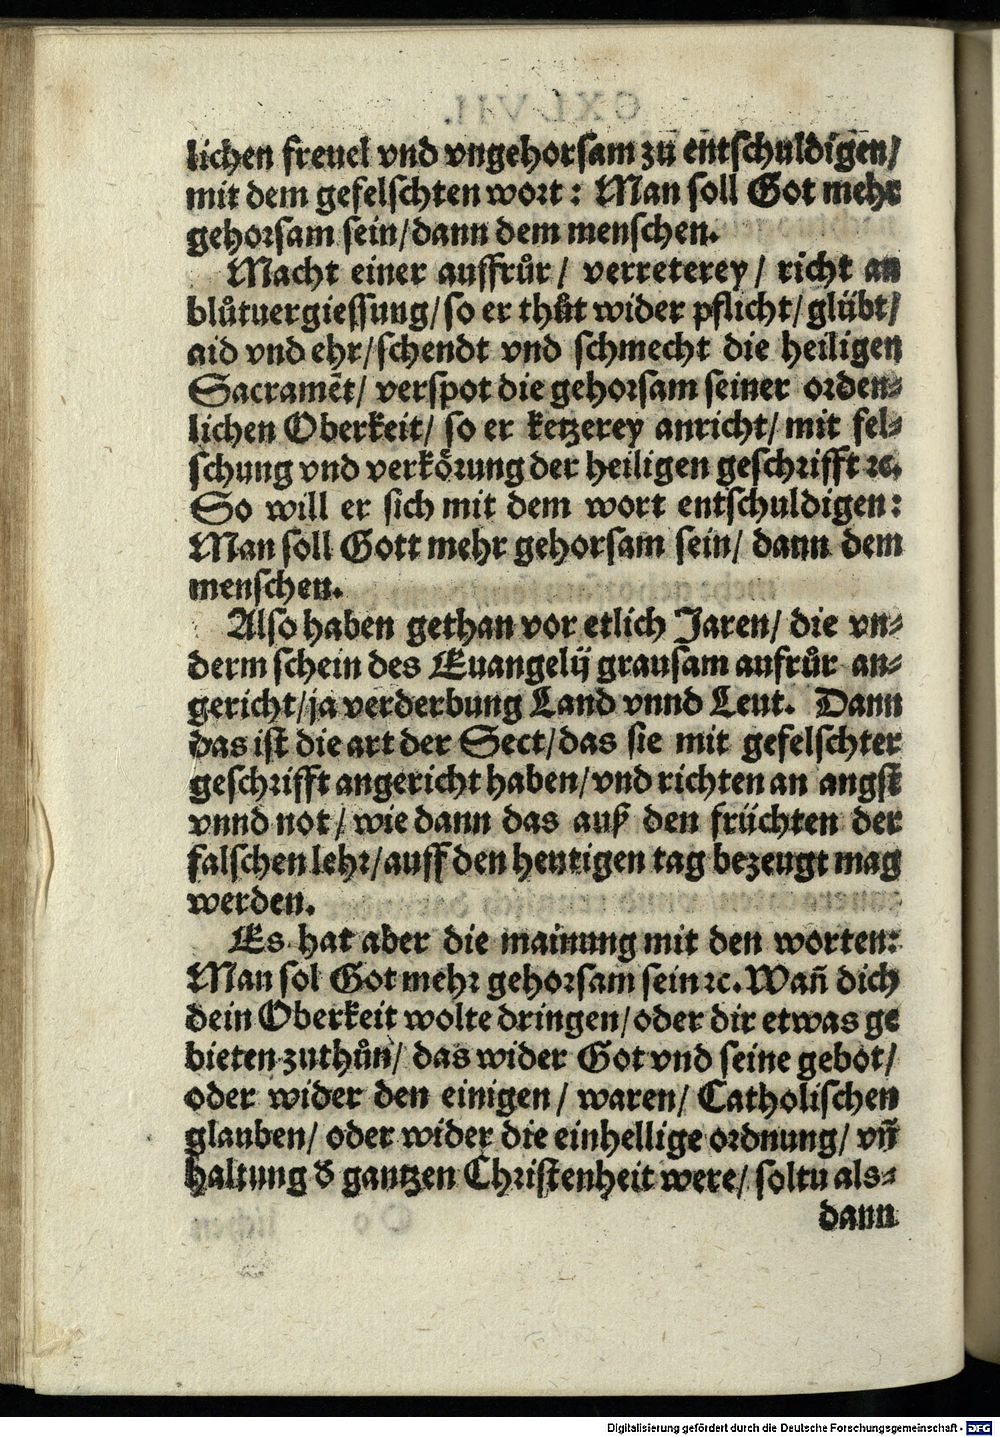 lichen freuel vnd vngehorsam zu entschuldigen/
mit dem gefelschten wort: Man soll Got mehr
gehorsam sein/dann dem menschen.
Macht einer auffrůr/ verreterey/ richt an
blůtuergiessung/so er thůt wider pflicht/glübt/
aid vnd ehr/schendt vnd schmecht die heiligen
Sacramēt/ verspot die gehorsam seiner orden⸗
lichen Oberkeit/ so er ketzerey anricht/ mit fel⸗
schung vnd verkörung der heiligen geschrifft ꝛc.
So will er sich mit dem wort entschuldigen:
Man soll Gott mehr gehorsam sein/ dann dem
menschen.
Also haben gethan vor etlich Jaren/ die vn⸗
derm schein des Euangelij grausam aufrůr an⸗
gericht/ja verderbung Land vnnd Leut. Dann
das ist die art der Sect/das sie mit gefelschter
geschrifft angericht haben/vnd richten an angst
vnnd not/wie dann das auß den früchten der
falschen lehr/auff den heutigen tag bezeugt mag
werden.
Es hat aber die mainung mit den worten:
Man sol Got mehr gehorsam sein ꝛc. Wañ dich
dein Oberkeit wolte dringen/oder dir etwas ge
bieten zuthůn/ das wider Got vnd seine gebot/
oder wider den einigen/ waren/ Catholischen
glauben/ oder wider die einhellige ordnung/ vñ
haltung ð gantzen Christenheit were/ soltu als⸗
dann
Digitalisierung gefördert durch die Deutsche Forschungsgemeinschaft - DFG